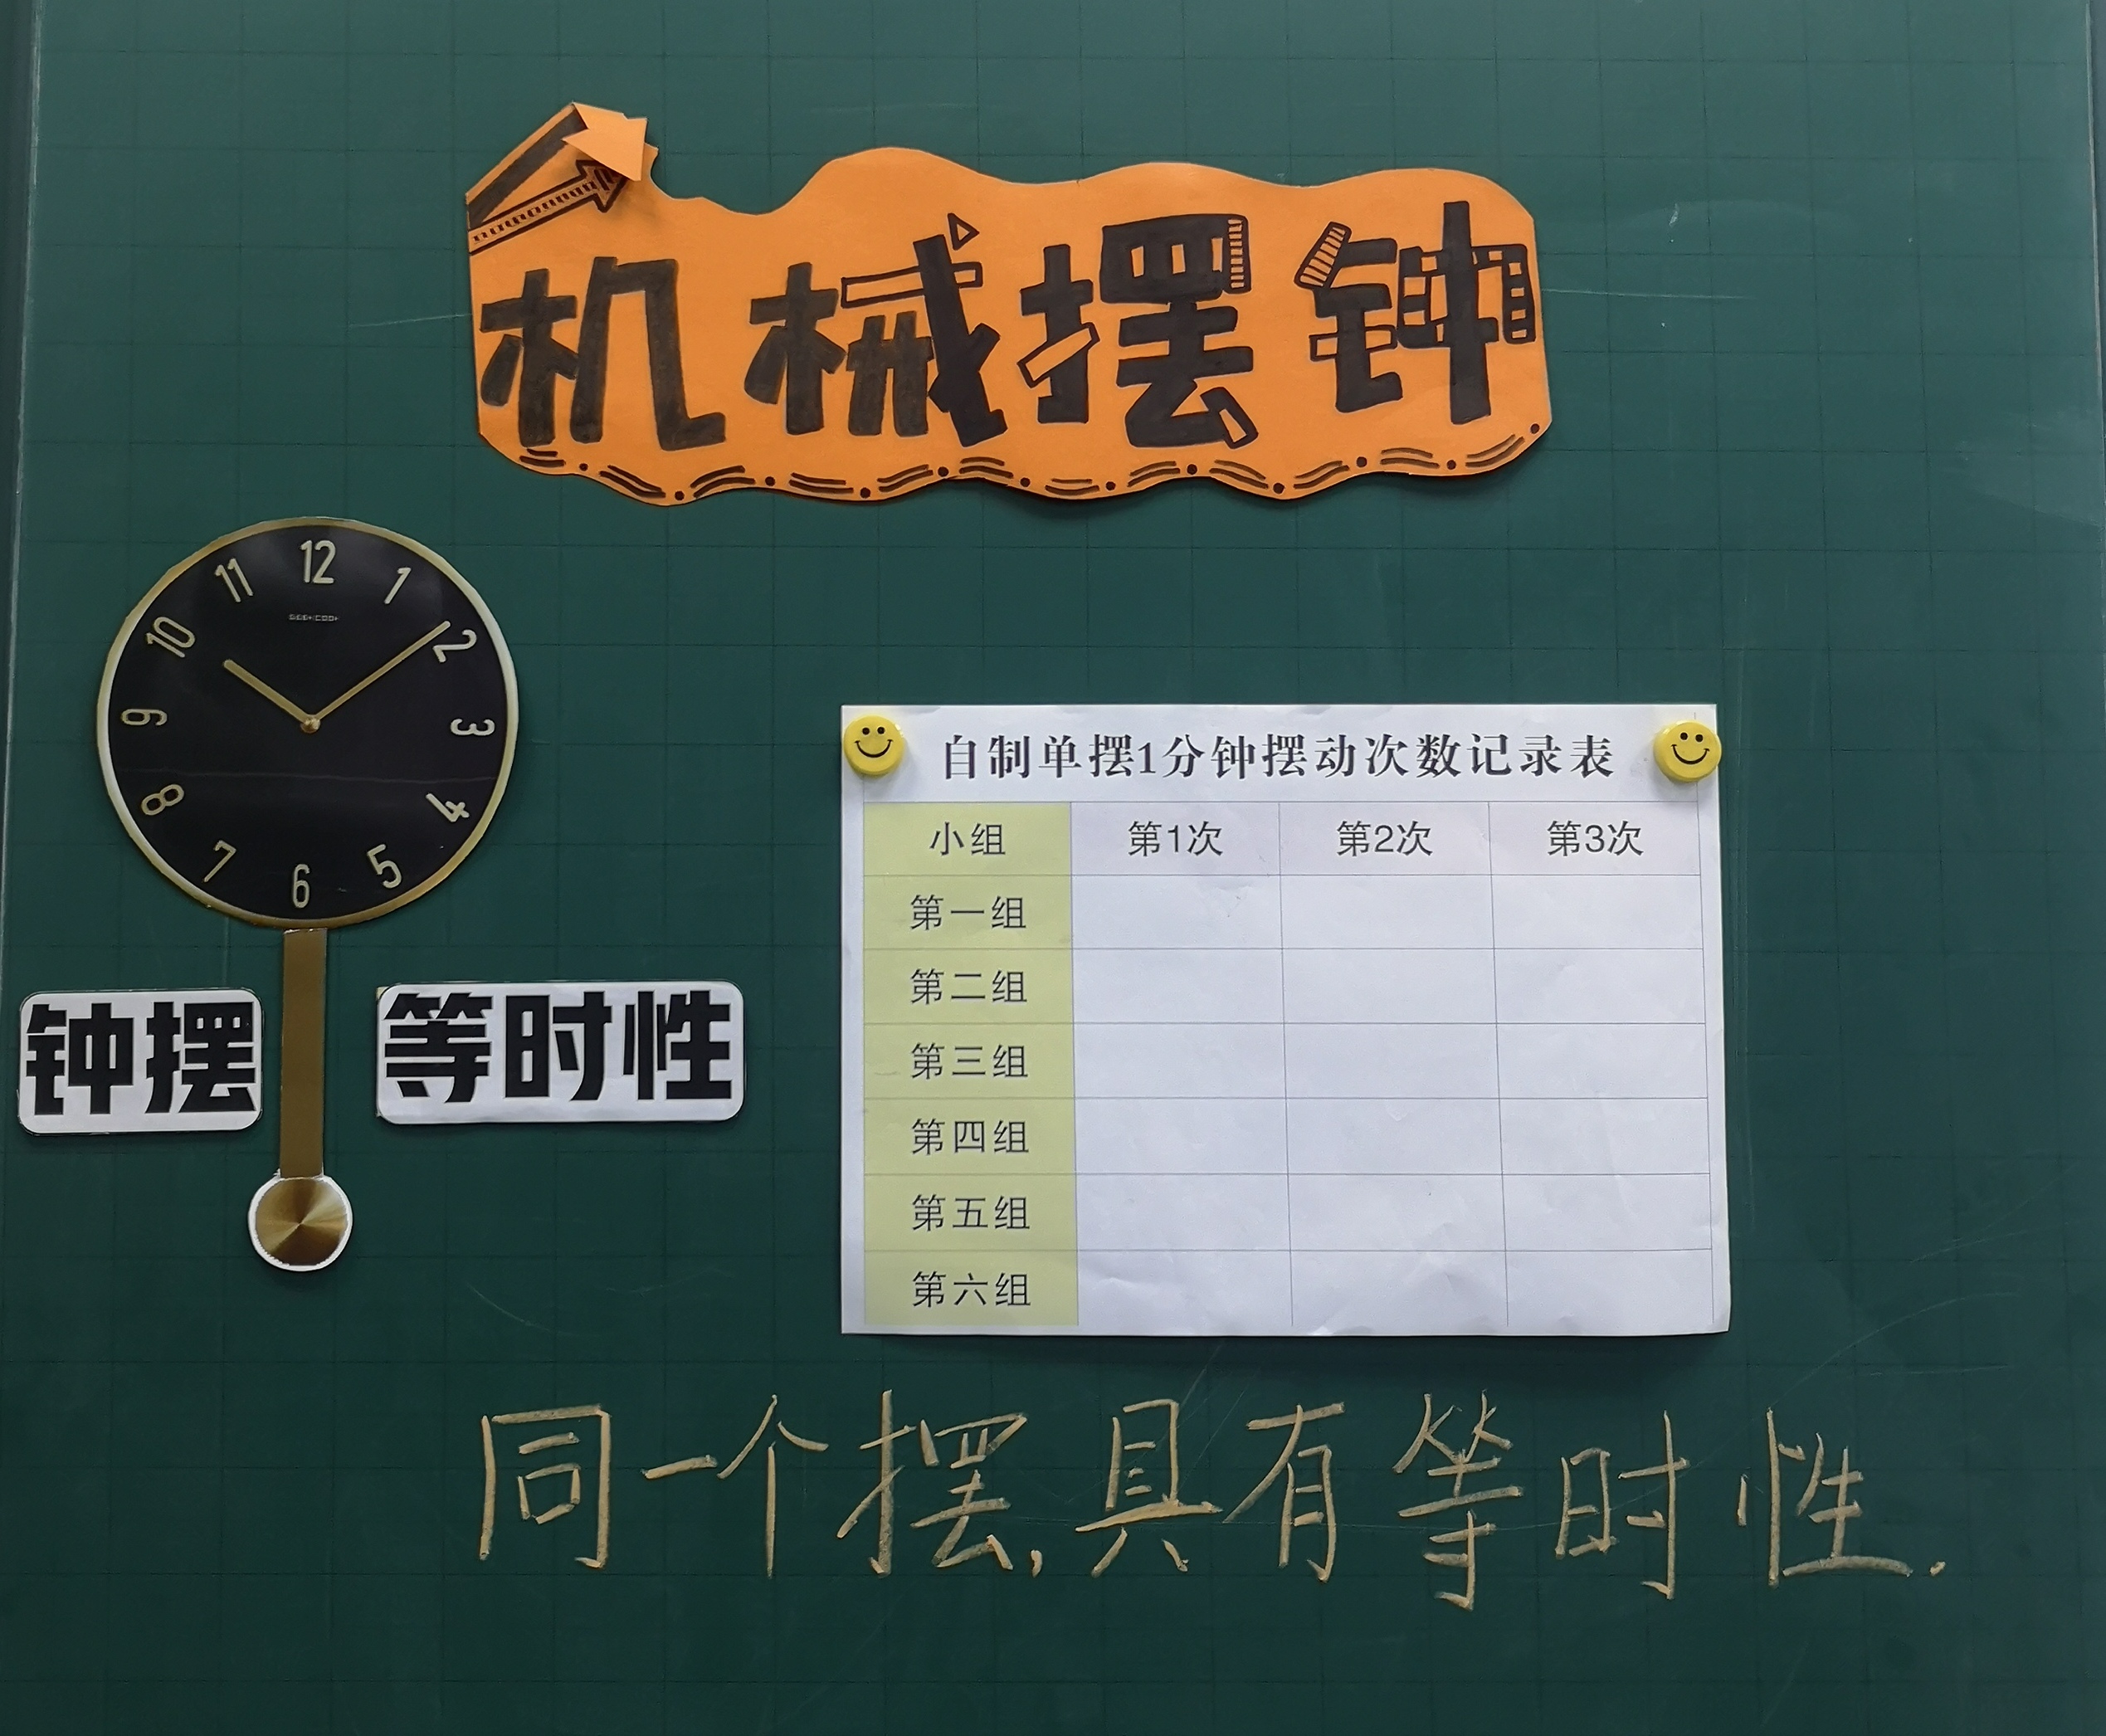 机械摆钟
12
11
1
10
2
9
3
8
4
7
5
6
钟摆
等时性
自制单摆1分钟摆动次数记录表
小组 第1次 第2次 第3次
第一组
第二组
第三组
第四组
第五组
第六组
同一个摆,具有等时性.